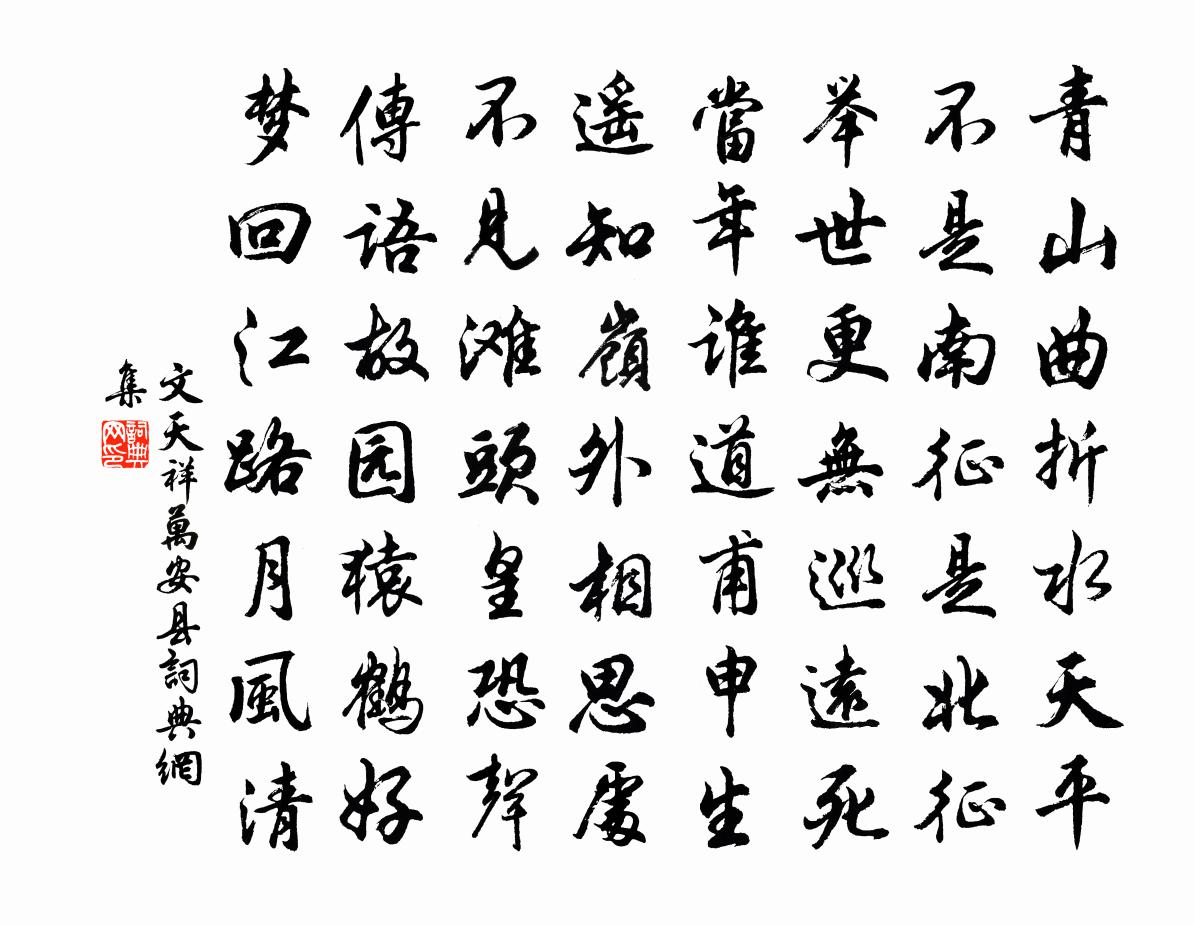 青山曲折水天平
不是南征是北征
举世更無巡遠死
當年谁道甫申生
遥知嶺外相思處
不見滩頭皇恐聲
傳語故园猿鹤好
梦回江路月風清
文天祥萬安县詞典網
集
詞典
网印